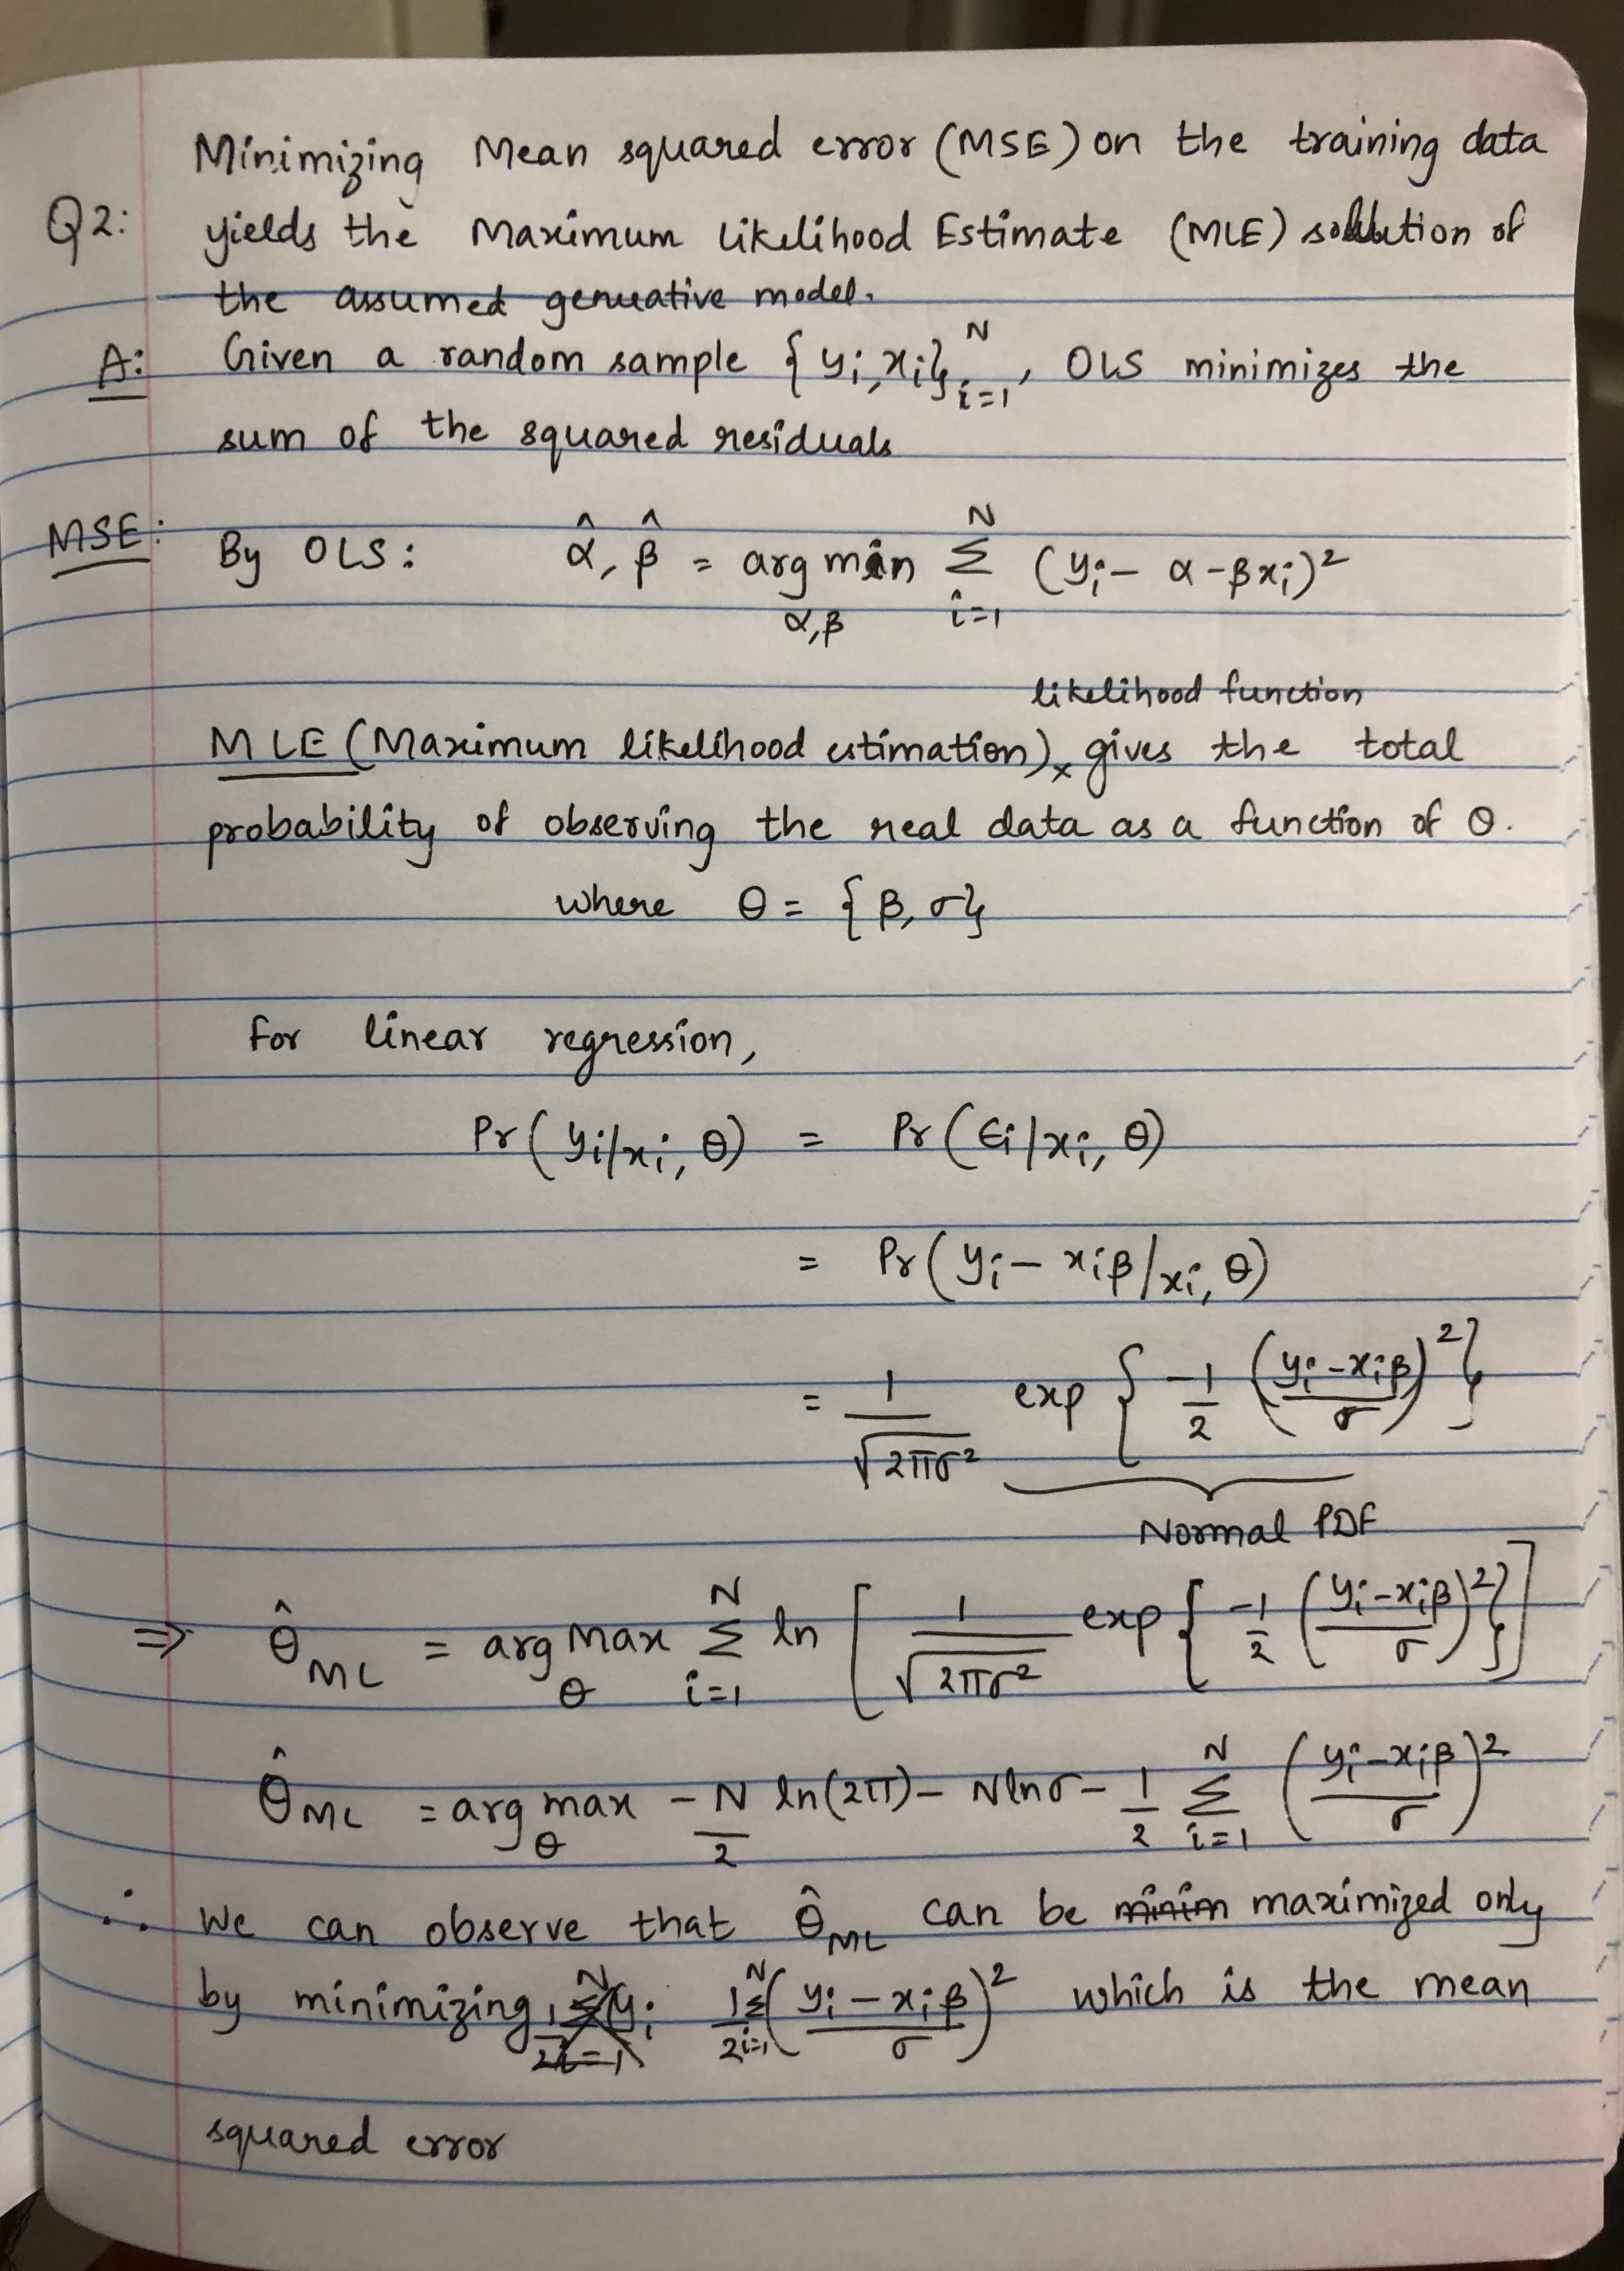 Minimizing Mean squared error (MSE) on the training data
Q2: yields the Maximum Likelihood Estimate (MLE) solution of
the assumed generative model.
A: Given a random sample {yi, xi}_{i=1}^{N}, OLS minimizes the
sum of the squared residuals
MSE: By OLS: α̂, β̂ = arg min_{α,β} Σ_{i=1}^{N} (yi − α − βxi)²
likelihood function
MLE (Maximum likelihood estimation)ₓ gives the total
probability of observing the real data as a function of θ.
where θ = {β, σ}
For linear regression,
Pr(yi/xi, θ) = Pr(ϵi/xi, θ)
= Pr(yi − xiβ/xi, θ)
= 1/√(2πσ²) exp{ −1/2 ((yi − xiβ)/σ)² }
Normal PDF
⇒ θ̂_ML = arg max_θ Σ_{i=1}^{N} ln [ 1/√(2πσ²) exp{ −1/2 ((yi − xiβ)/σ)² } ]
θ̂_ML = arg max_θ −N/2 ln(2π) − N lnσ − 1/2 Σ_{i=1}^{N} ((yi − xiβ)/σ)²
∴ We can observe that θ̂_ML can be minim maximized only
by minimizing 1/2 Σ_{i=1}^{N} yi 1/2 Σ_{i=1}^{N} ((yi − xiβ)/σ)² which is the mean
squared error